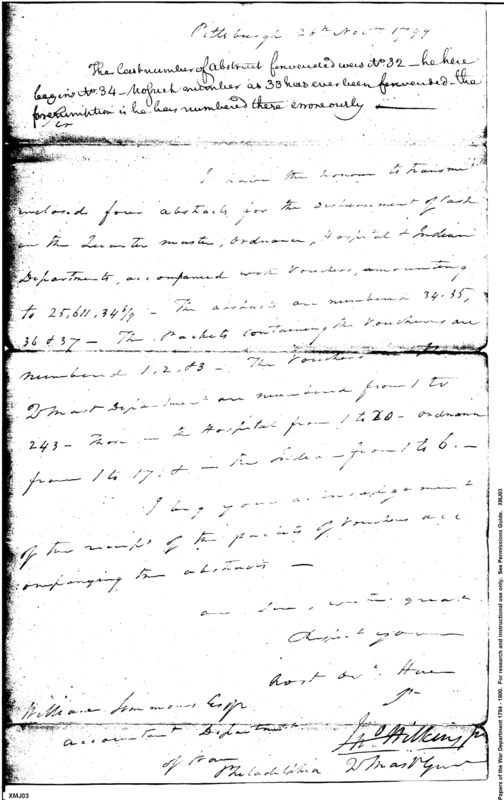 Pittsburgh 28th Novr. 1799
The last number of abstract forwarded was No. 32 – he here
begins No. 34 – No such number as 33 has ever been forwarded – the
presumption is he has numbered there erroneously
I have the honour to transmit
enclosed four abstracts for the disbursement of Cash
in the Quarter master, Ordnance, Hospital & Indian
Departments, accompanied with Vouchers, amounting
to 25,611.34 – The abstracts are numbered 34. 35,
36 & 37 – The Packets containing the Vouchers are
numbered 1. 2. & 3 – The Vouchers
Q Mast Department are numbered from 1 to
243 – Those in the Hospital from 1 to 20 – Ordnance
from 1 to 17. & in the Indian from 1 to 6. –
I beg your acknowledgement
of the receipt of the packets of Vouchers acc
ompanying the abstracts –
am Sir, with great
Respect your
most Obt. Hum
William Simmons Esqr
Jno. Wilkins Jr
accountant Department
of War
Q Mast Genl
Philadelphia
XMJ03
Papers of the War Department 1784 - 1800. For research and instructional use only. See Permissions Guide. XMJ03